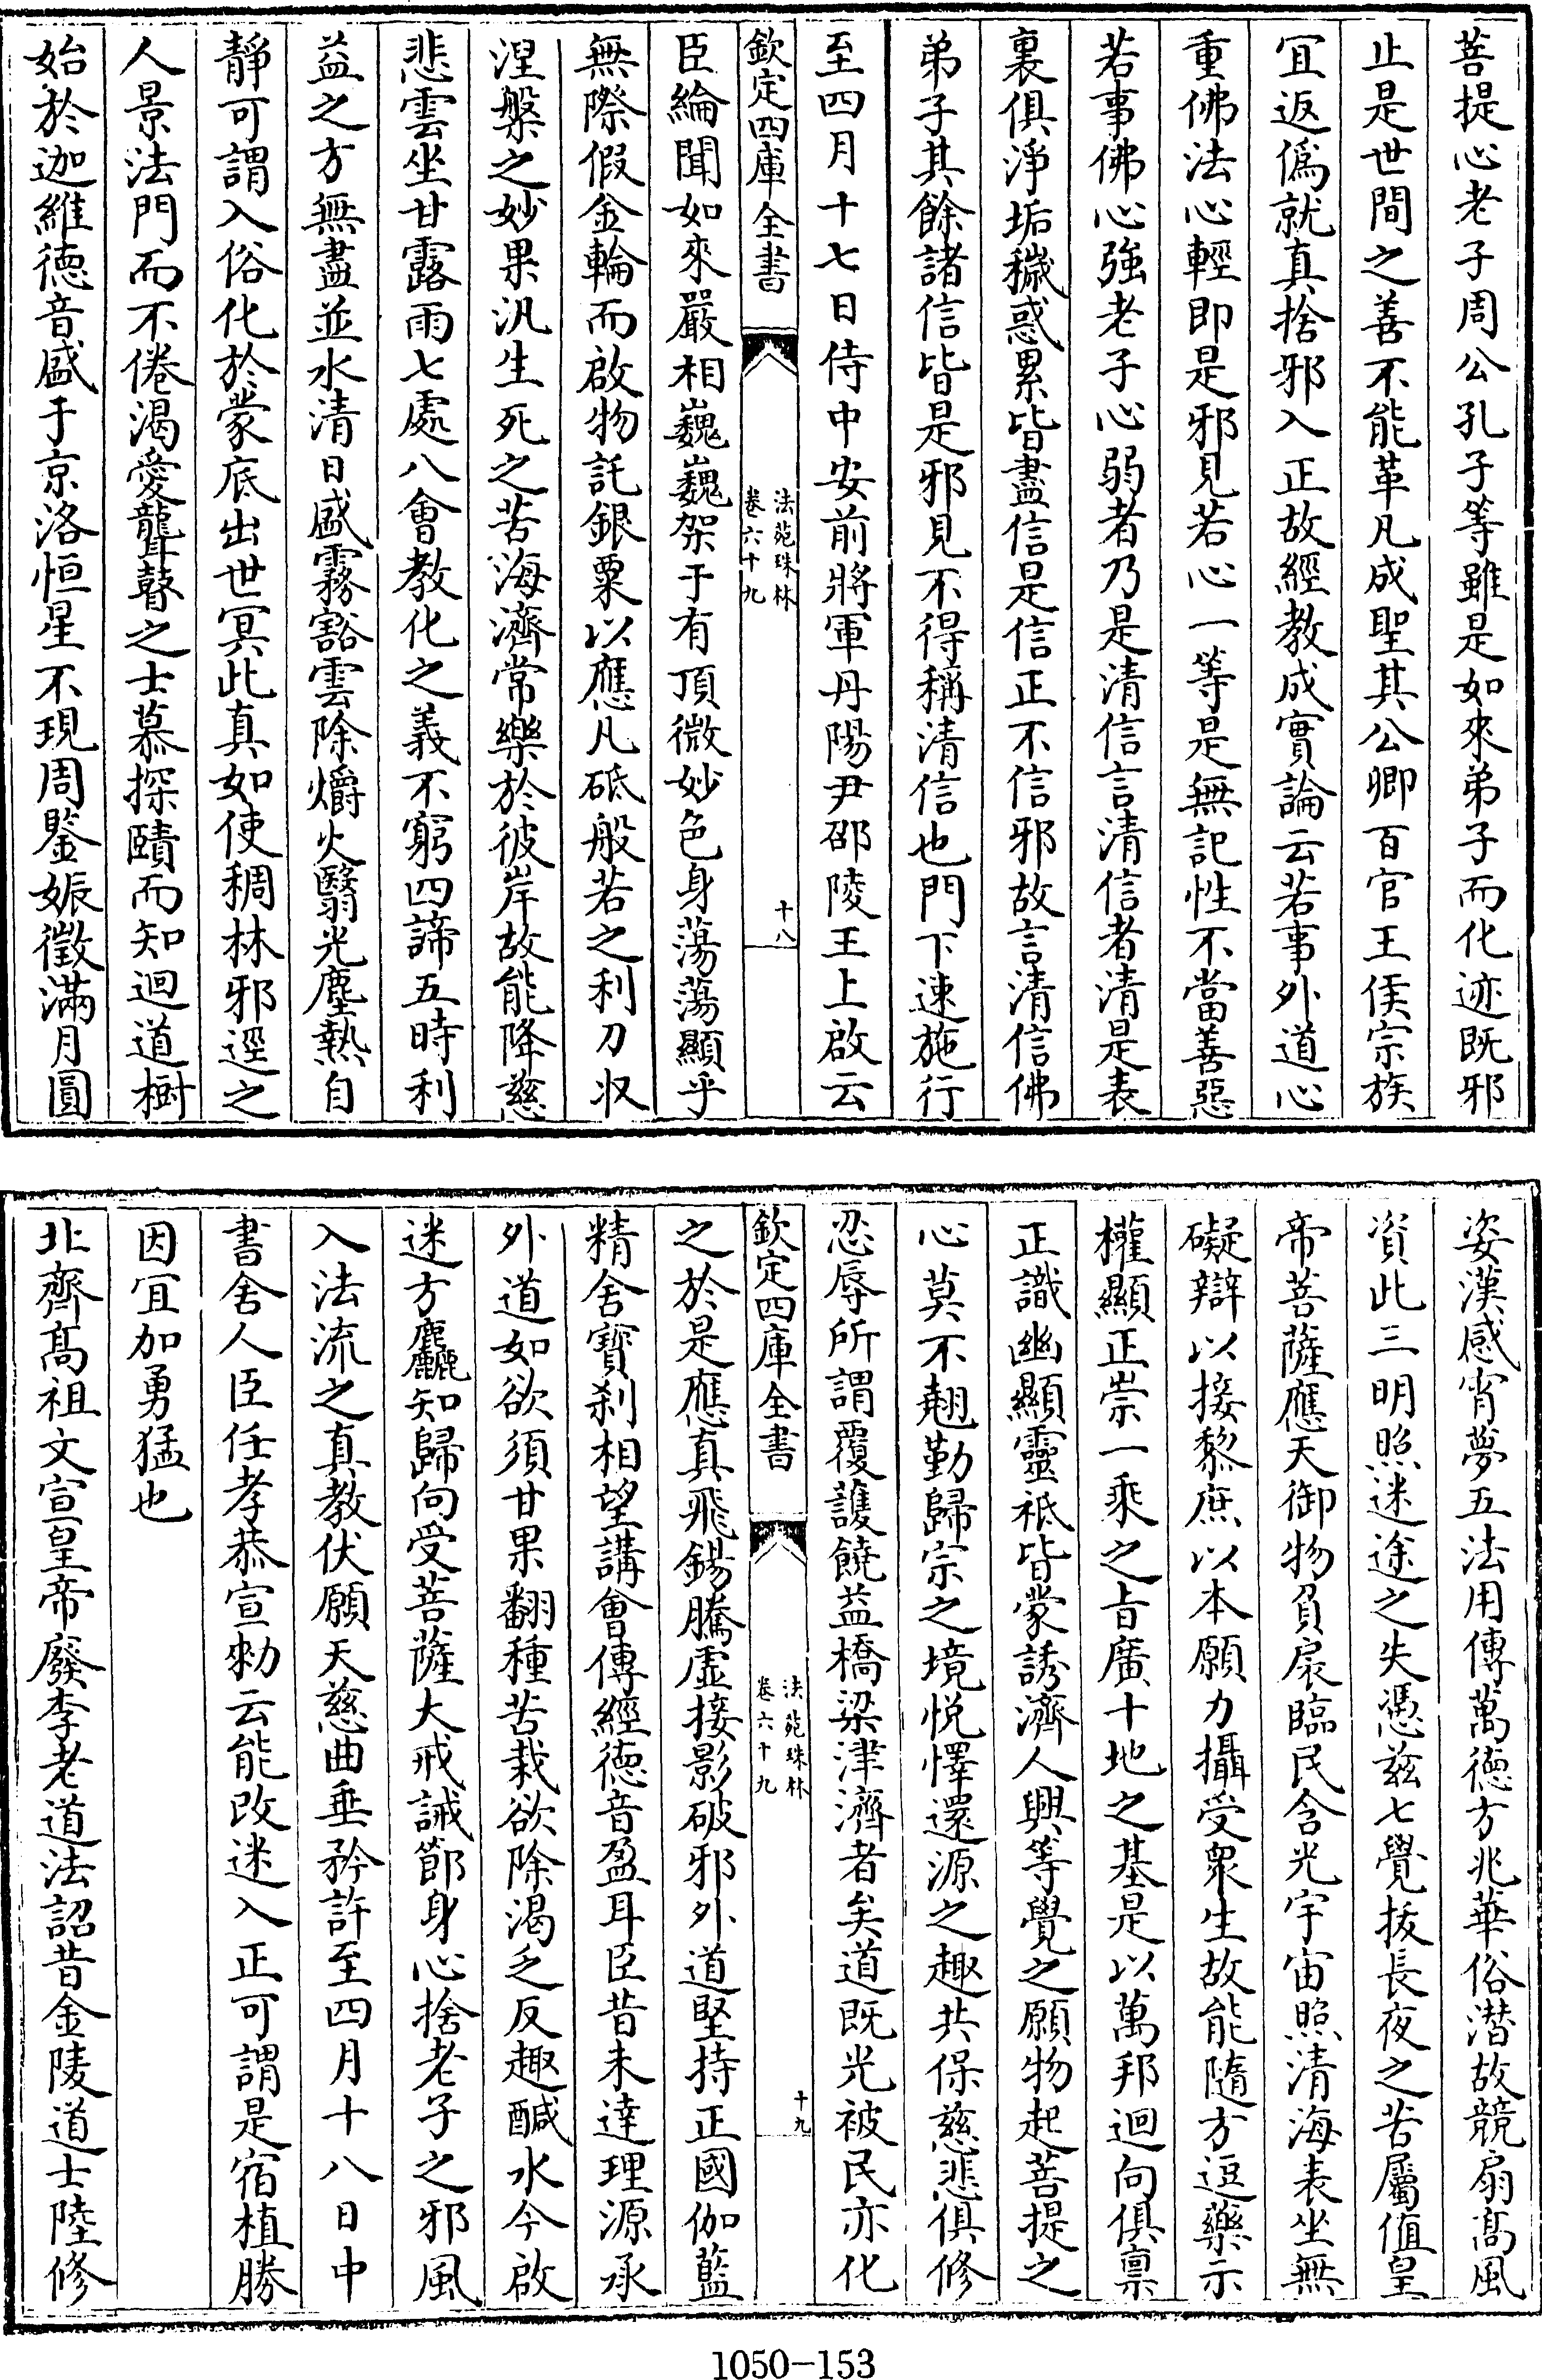 菩提心老子周公孔子等雖是如來弟子而化迹既邪
止是世間之善不能革凡成聖其公卿百官王侯宗族
宜返偽就真捨邪入正故經教成實論云若事外道心
重佛法心輕即是邪見若心一等是無記性不當善惡
若事佛心強老子心弱者乃是清信言清信者清是表
裏俱淨垢穢惑累皆盡信是信正不信邪故言清信佛
弟子其餘諸信皆是邪見不得稱清信也門下速施行
至四月十七日侍中安前將軍丹陽尹邵陵王上啟云
欽定四庫全書
法苑珠林
卷六十九
十八
臣綸聞如來嚴相巍巍架于有頂微妙色身蕩蕩顯乎
無際假金輪而啟物託銀粟以應凡砥般若之利刀收
涅槃之妙果汎生死之苦海濟常樂於彼岸故能降慈
悲雲坐甘露雨七處八會教化之義不窮四諦五時利
益之方無盡並水清日盛霧豁雲除爝火翳光塵熱自
靜可謂入俗化於蒙底出世冥此真如使稠林邪逕之
人景法門而不倦渴愛聾瞽之士慕探賾而知迴道樹
始於迦維德音盛于京洛恒星不現周鑒娠徵滿月圓
姿漢感宵夢五法用傳萬德方兆華俗潛故競扇髙風
資此三明照迷途之失憑兹七覺拔長夜之苦屬值皇
帝菩薩應天御物負扆臨民含光宇宙照清海表坐無
礙辯以接黎庶以本願力攝受眾生故能隨方逗藥示
權顯正崇一乘之旨廣十地之基是以萬邦迴向俱稟
正識幽顯靈祇皆蒙誘濟人興等覺之願物起菩提之
心莫不翹勤歸宗之境悅懌還源之趣共保慈悲俱修
忍辱所謂覆護饒益橋梁津濟者矣道既光被民亦化
欽定四庫全書
法苑珠林
卷六十九
十九
之於是應真飛錫騰虛接影破邪外道堅持正國伽藍
精舍寶刹相望講會傳經德音盈耳臣昔未達理源承
外道如欲須甘果翻種苦栽欲除渴乏反趣鹹水今啟
迷方麤知歸向受菩薩大戒誡節身心捨老子之邪風
入法流之真教伏願天慈曲垂矜許至四月十八日中
書舍人臣任孝恭宣勑云能改迷入正可謂是宿植勝
因宜加勇猛也
北齊髙祖文宣皇帝廢李老道法詔昔金陵道士陸修
1050-153